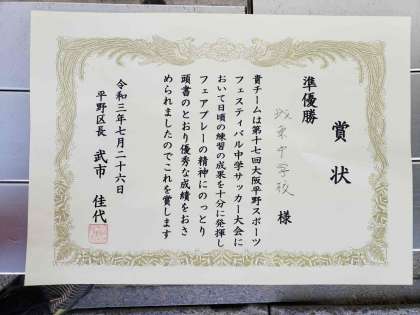 賞状
準優勝
中学校 様
貴チームは第十七回大阪平野スポーツ
フェスティバル中学サッカー大会に
おいて日頃の練習の成果を十分に発揮し
フェアプレーの精神にのっとり
頭書のとおり優秀な成績をおさ
められましたのでこれを賞します
令和三年七月二十六日
平野区長 武市 佳代